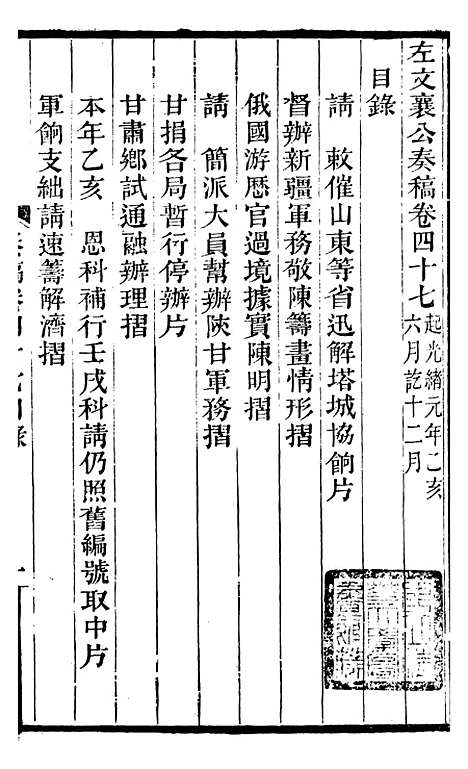 左文襄公奏稿卷四十七 起光緒元年乙亥六月訖十二月
目錄
請 敕催山東等省迅解塔城協餉片
督辦新疆軍務敬陳籌畫情形摺
俄國游歷官過境據實陳明摺
請 簡派大員幫辦陝甘軍務摺
甘捐各局暫行停辦片
甘肅鄉試通融辦理摺
本年乙亥 恩科補行壬戌科請仍照舊編號取中片
軍餉支絀請速籌解濟摺
奏稿卷四十七目錄 一